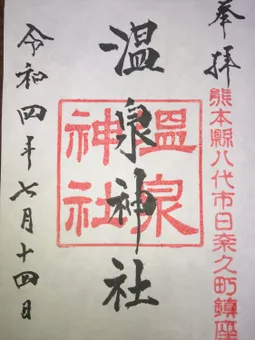 奉拝
熊本縣八代市日奈久町鎮座
温泉神社
温泉神社
令和四年七月十四日